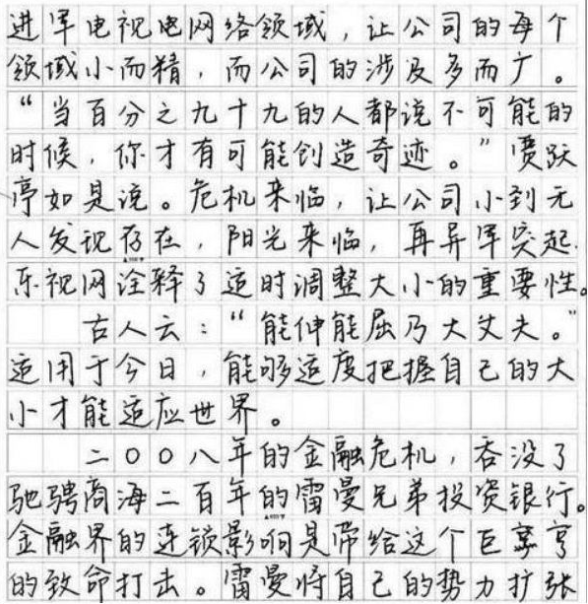 进军电视电网络领域，让公司的每个
领域小而精，而公司的涉及多而广。
“当百分之九十九的人都说不可能的
时候，你才有可能创造奇迹。”贾跃
亭如是说。危机来临，让公司小到无
人发现存在，阳光来临，再异军突起
乐视网诠释了适时调整大小的重要性。
古人云：“能伸能屈乃大丈夫。”
适用于今日，能够适度把握自己的大
小才能适应世界。
二〇〇八年的金融危机，吞没了
驰骋商海二百年的雷曼兄弟投资银行。
金融界的连锁影响是带给这个巨亨
的致命打击。雷曼将自己的势力扩张